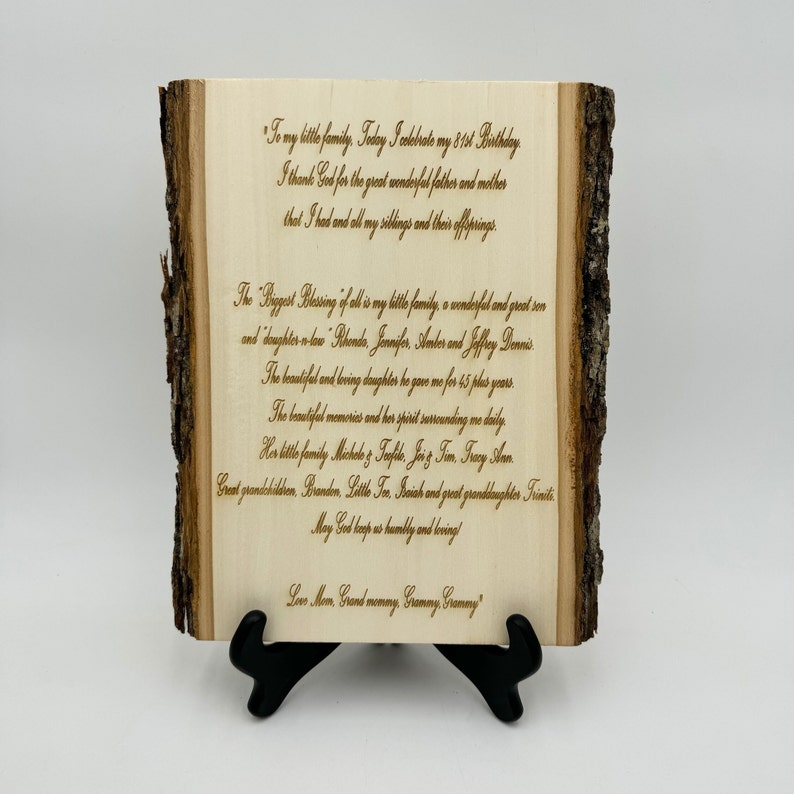 "To my little family, Today I celebrate my 81st Birthday.
I thank God for the great wonderful father and mother
that I had and all my siblings and their offsprings.
The "Biggest Blessing" of all is my little family, a wonderful and great son
and "daughter-n-law" Rhonda, Jennifer, Amber and Jeffrey Dennis.
The beautiful and loving daughter he gave me for 45 plus years.
The beautiful memories and her spirit surrounding me daily.
Her little family Michele & Teofilo, Joi & Tim, Tracy Ann.
Great grandchildren, Brandon, Little Tee, Isaiah and great granddaughter Triniti.
May God keep us humbly and loving!
Love Mom, Grand mommy, Grammy, Grammy"